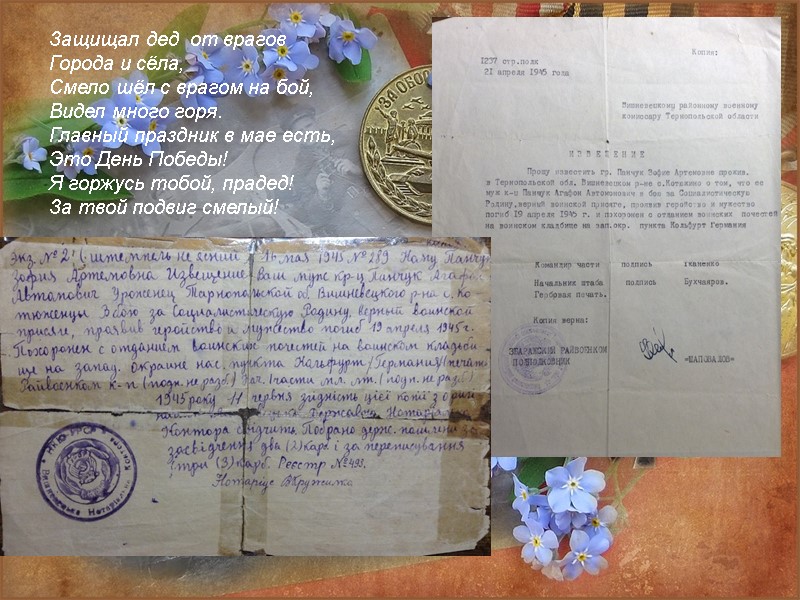 Защищал дед от врагов
Города и сёла,
Смело шёл с врагом на бой,
Видел много горя.
Главный праздник в мае есть,
Это День Победы!
Я горжусь тобой, прадед!
За твой подвиг смелый!
ЗА ОБО
Копия:
1237 стр.полк
21 апреля 1945 года
Вишневецкому районному военному
комиссару Тернопольской области
ИЗВЕЩЕНИЕ
Прошу известить гр. Панчук Зофию Артемовну прожив.
в Тернопольской обл. Вишневецком р-не с. о том, что ее
муж к-ц Панчук Агафон в бою за Социалистическую
Родину,верный воинской присяге, проявив геройство и мужество
погиб 19 апреля 1945 г. и похоронен с отданием воинских почестей
на воинском кладбище на зап.окр. пункта Кальфурт Германия
Командир части подпись Ткаченко
Начальник штаба подпись Бухчаяров.
Гербовая печать.
Копия верна:
ЗБАРАЖСКИЙ РАЙВОЕНКОМ
ПОДПОЛКОВНИК «ШАПОВАЛОВ»
Экз №2 (штемпель не ясний 16 мая 1945 №289 Кому Панчук
Зофия Артемовна Извещение Ваш муж кр-ц Панчук Агафо
Автапович Уроженец Тарнопольской об Вишневецкого р-на с. Ко
тюженцы В бою за Социалистическую Родину, верный воинской
присяге, проявив геройство и мужество погиб 19 апреля 1945г.
Похоронен с отданием воинских почестей на воинском кладби
ще на запад. окраине нас. пункта Кальфурт /Германия/ (печать
Райвоенком к-н (подп. не разб.) Нач. части мл. лт. (подп. не разб.)
1945 року 11 червня зидність цієї копії з ориги
Державна Нотаріальна
Контора свідчить Побрано держ. пошлини за
засвідчення два (2) карб і за переписування
три (3) карб. Реєстр №493.
Нотаріус ВКружилка